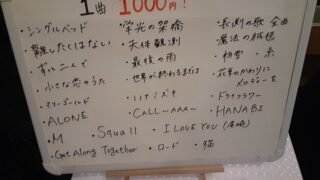 1曲 1000円!
・シングルベッド
・離したくはない
・ずっと二人で
・小さな恋のうた
・マリーゴールド
・ALONE
・M
・Get Along Together
・栄光の架橋
・天体観測
・最後の雨
・世界が終るまでは
・ハナミズキ
・CALL 〜AAA〜
・Squall
・I LOVE YOU (尾崎)
・ロード
・猫
・長渕の歌 全曲
・魔法の絨毯
・粉雪 ・糸
・花束のかわりに
メロディーを
・ドライフラワー
・HANABI